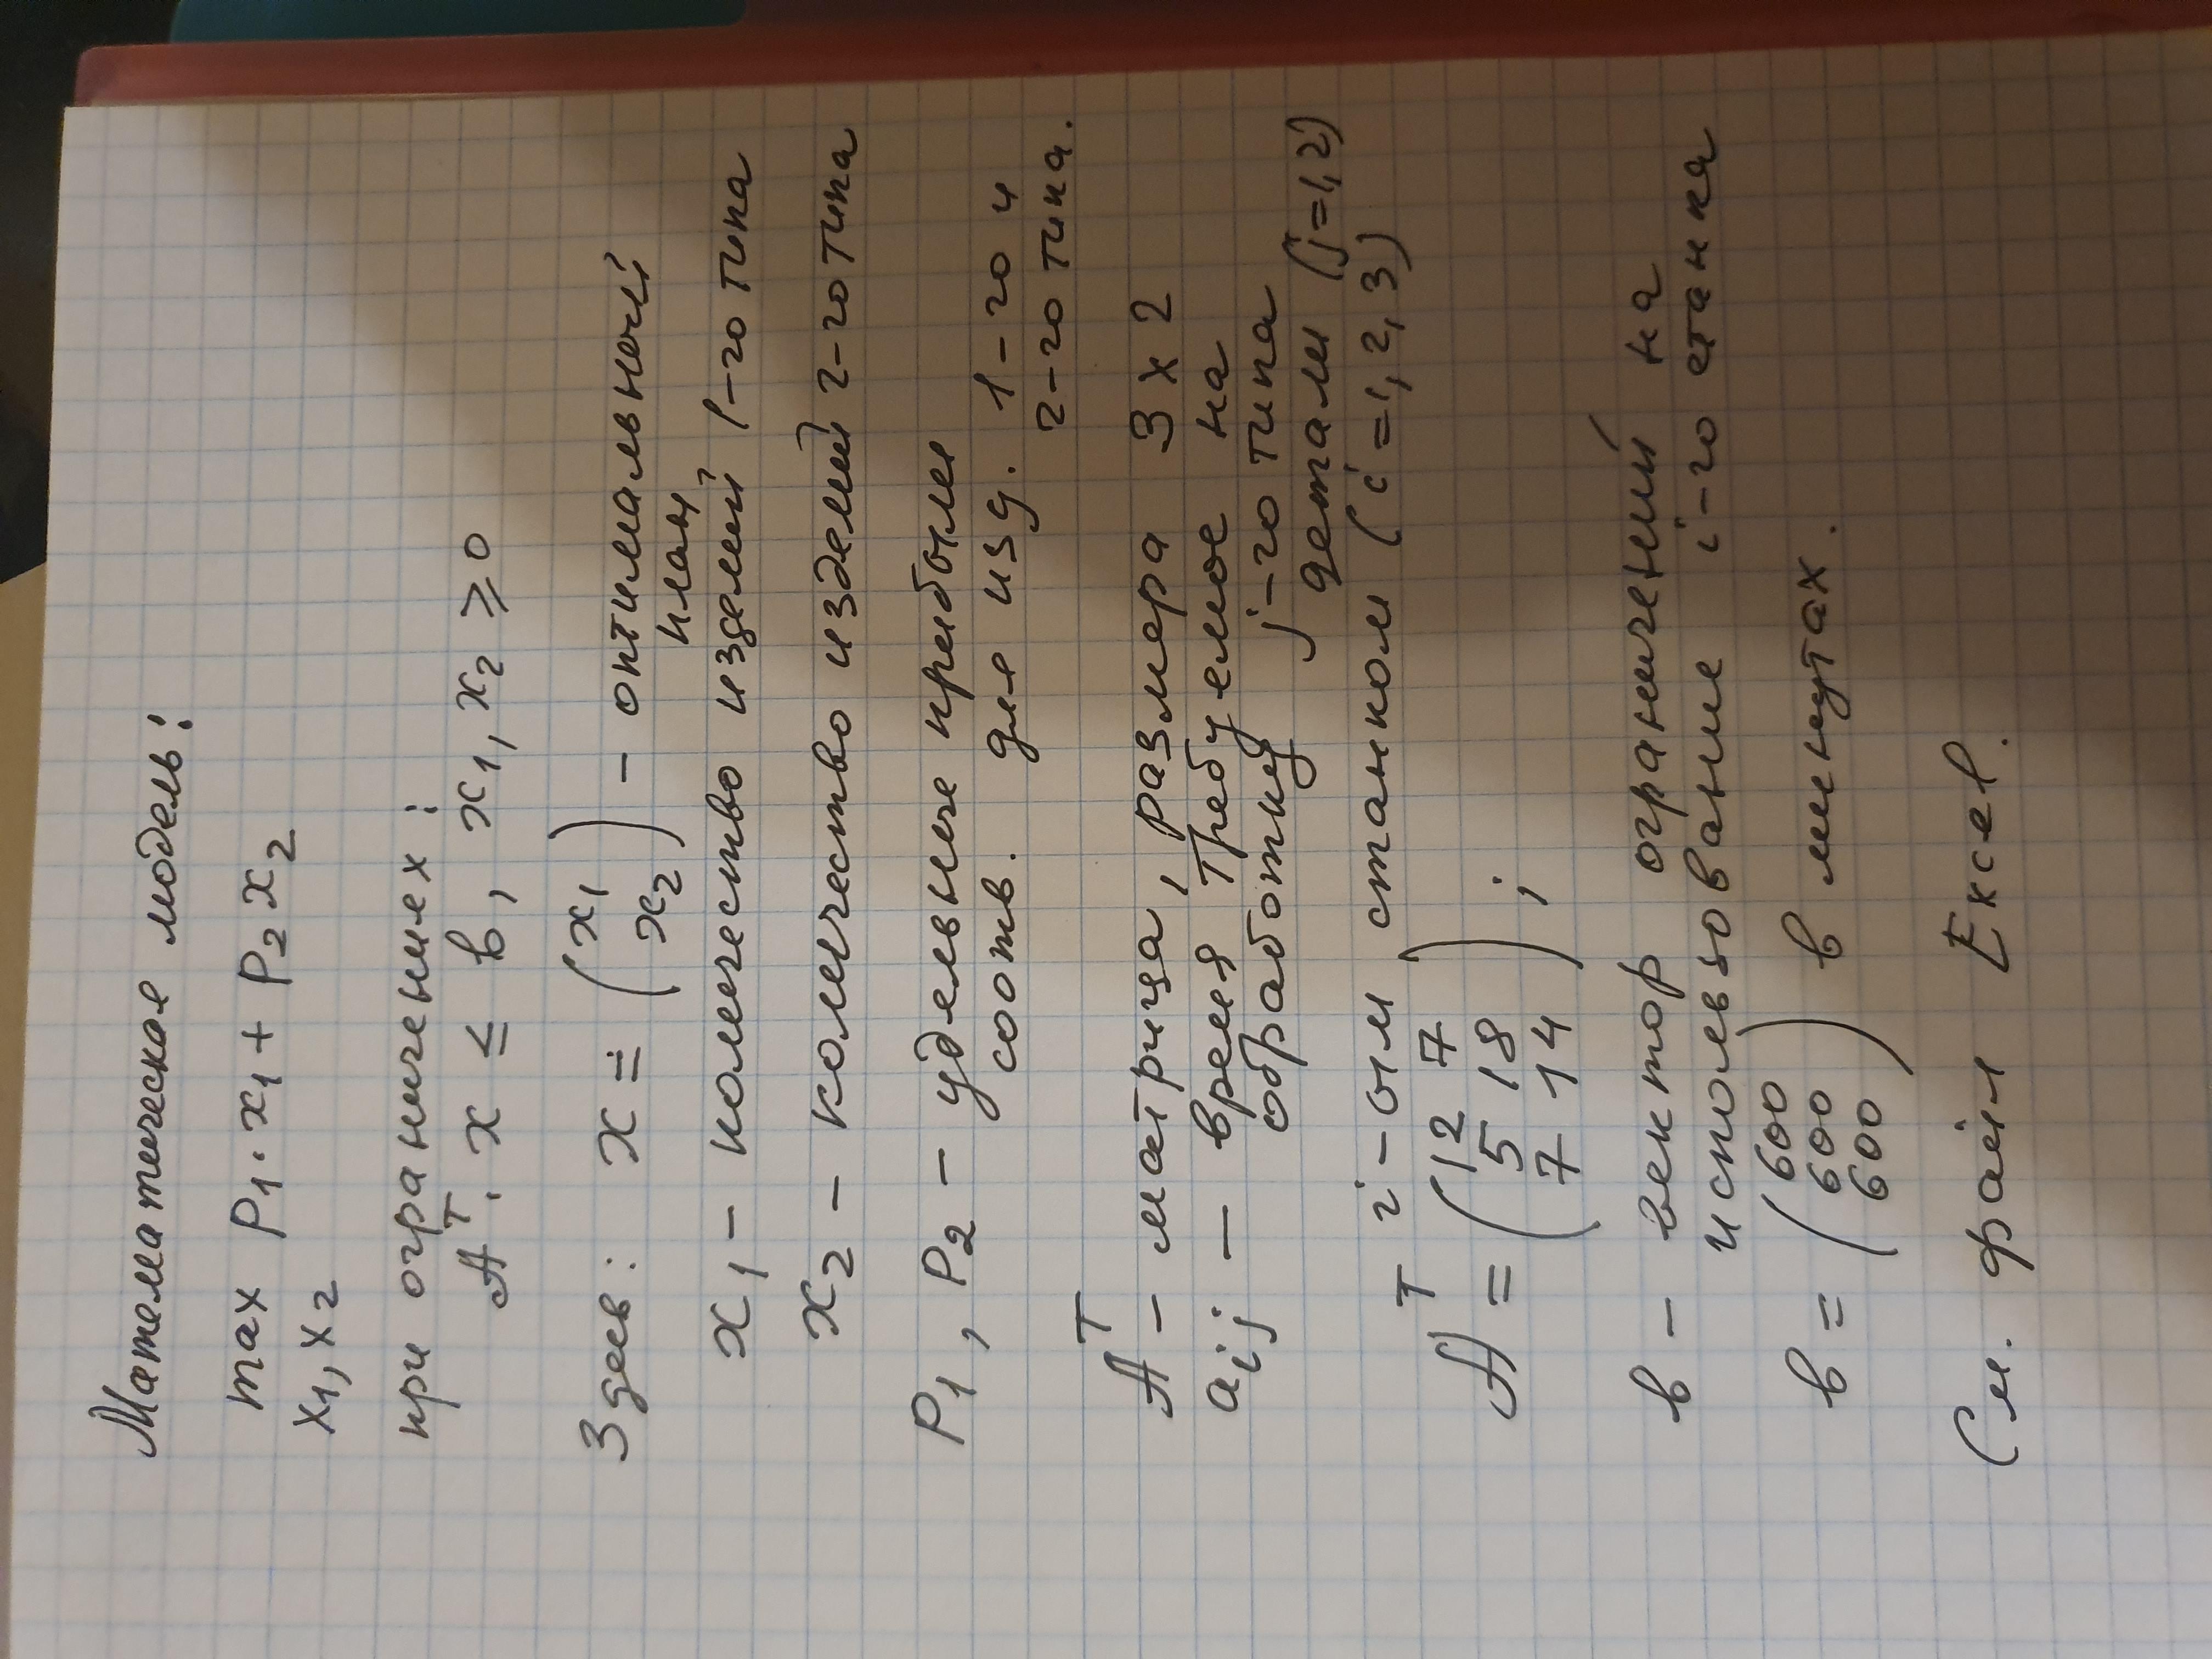 Математическая модель:
max P₁·x₁ + P₂x₂
x₁, x₂
при ограничениях:
Aᵀ·x ≤ b, x₁, x₂ ≥ 0
Здесь: x = (x₁ x₂) – оптимальный
план
x₁ – количество изделий 1-го типа
x₂ – количество изделий 2-го типа
P₁, P₂ – удельные прибыли
соотв. для изд. 1-го и
2-го типа.
Aᵀ – матрица, размера 3 x 2
aᵢⱼ – время требуемое на
обработку j-го типа
детали (j=1,2)
i-ым станком (i=1, 2, 3)
Aᵀ = (12 7
5 18
7 14);
b – вектор ограничений на
использование i-го станка
b = (600
600
600) в минутах.
См. файл Ексel.